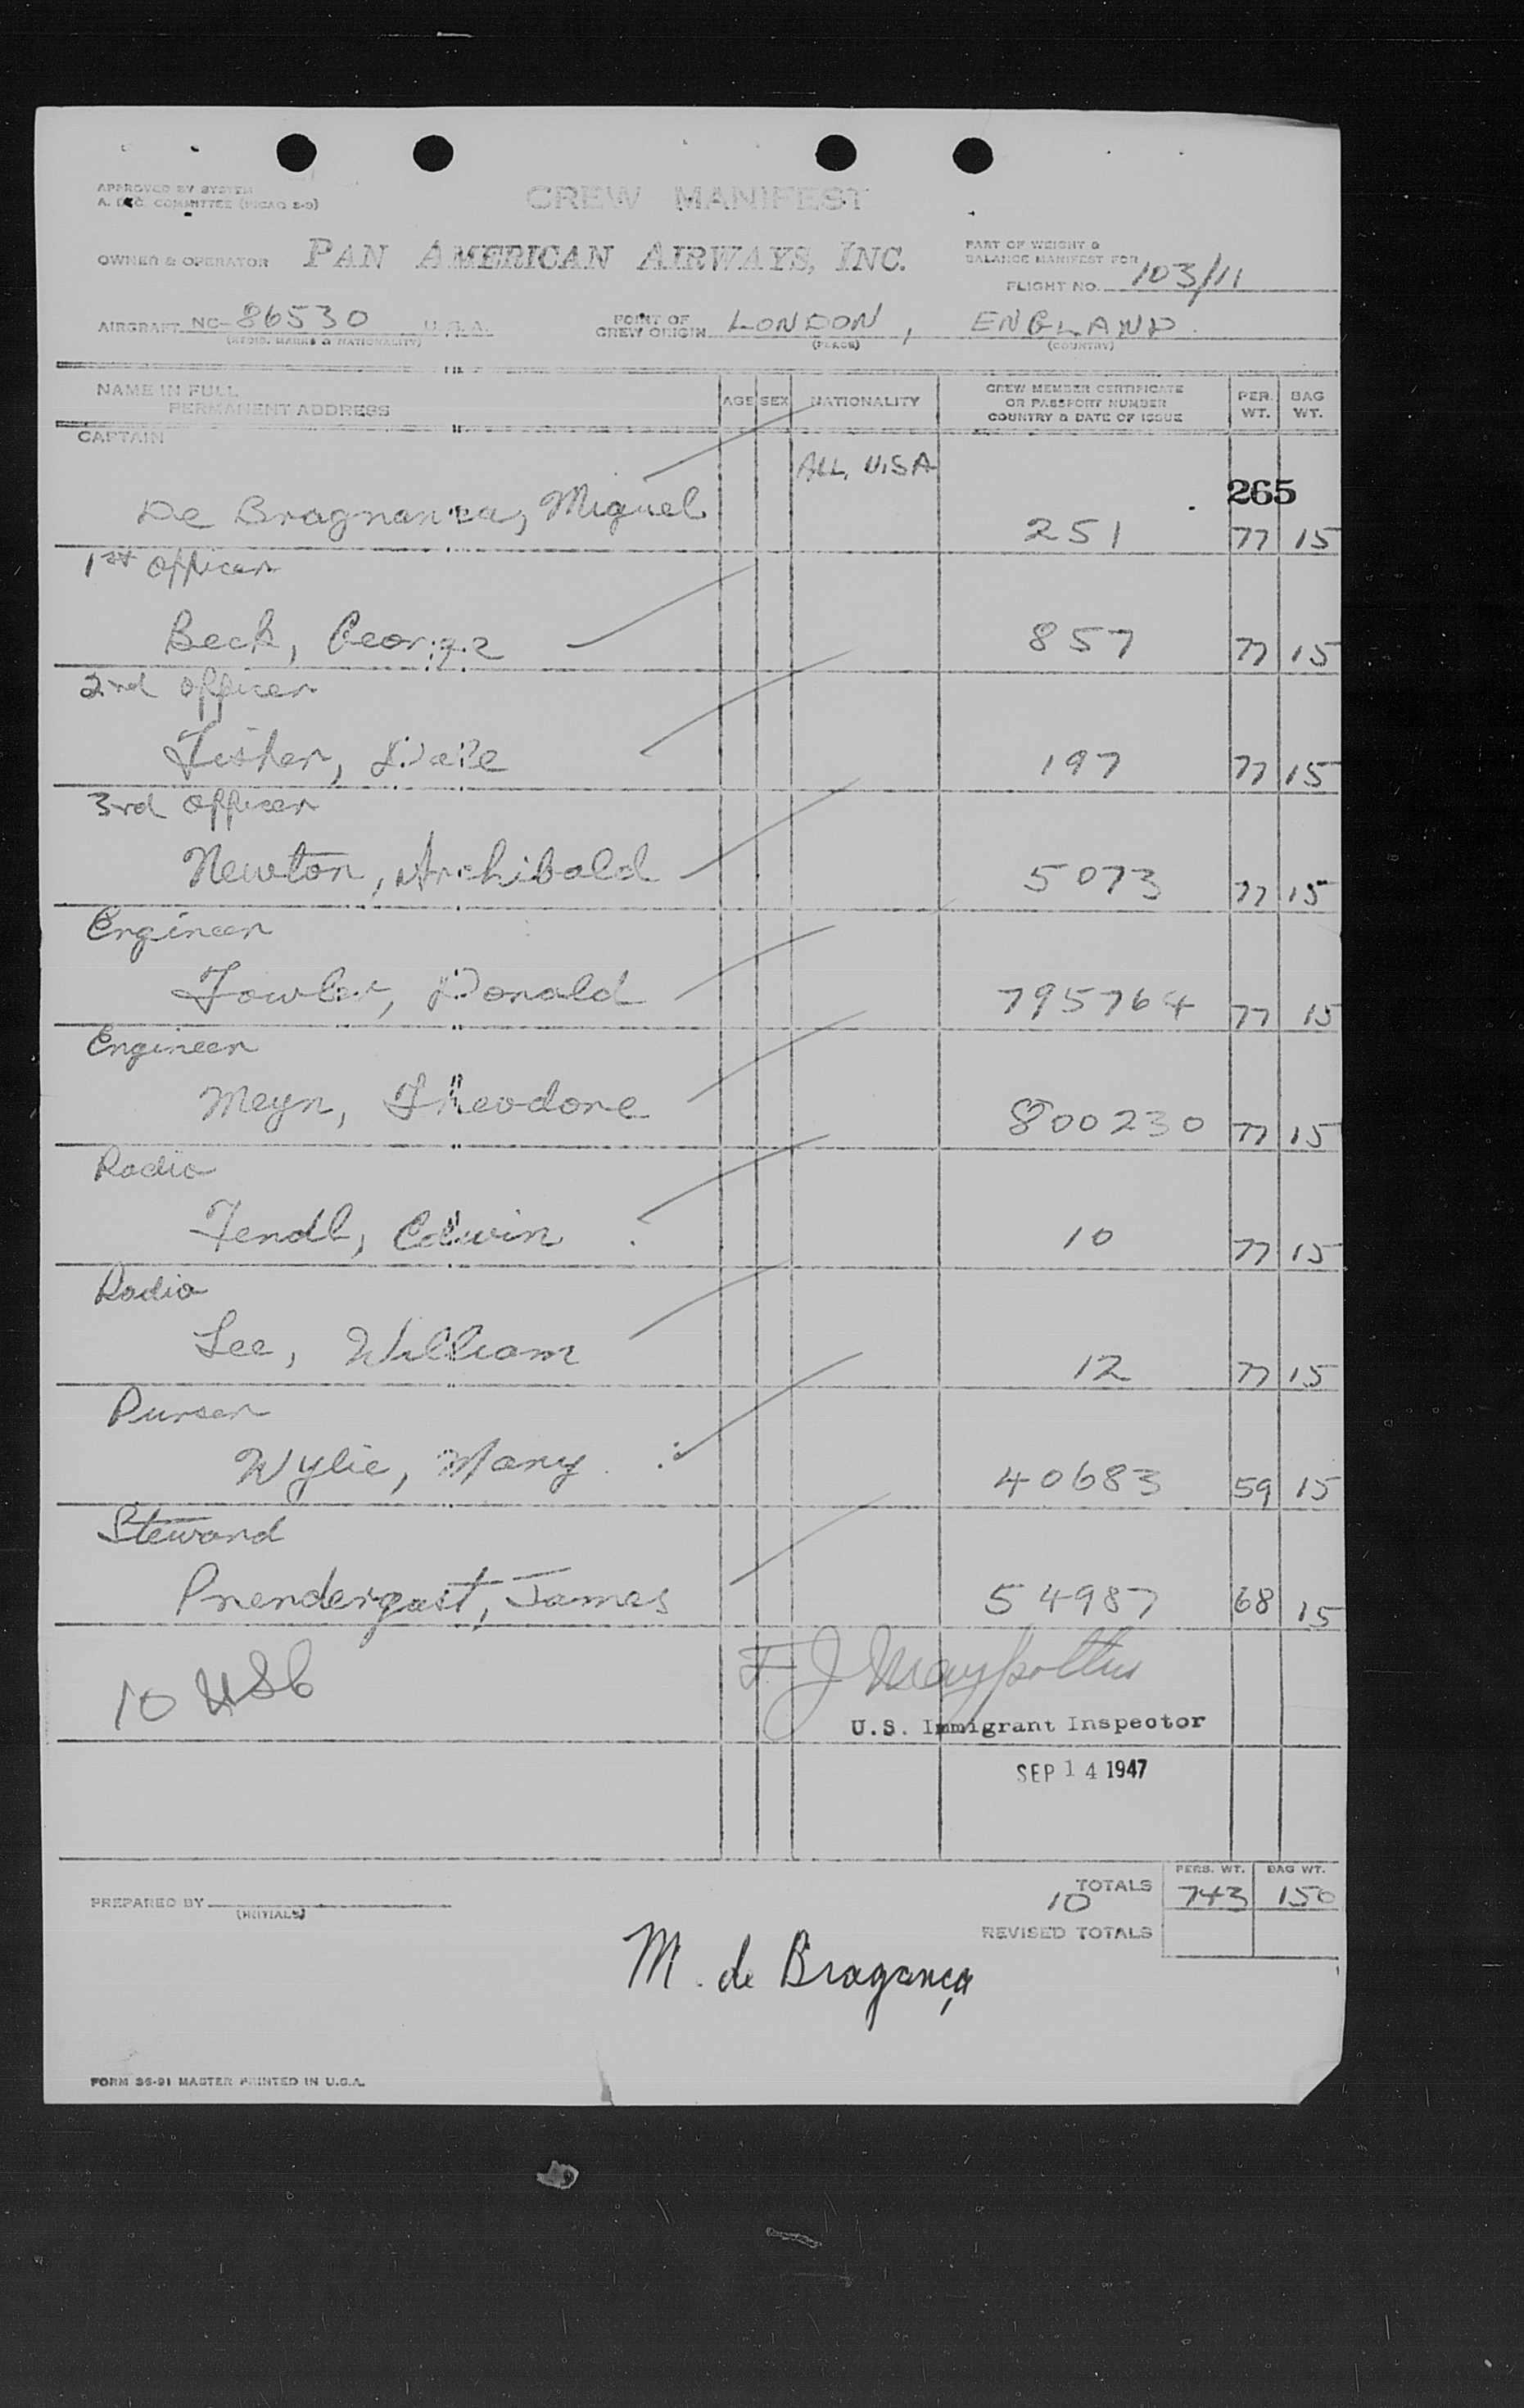 APPROVED BY SYSTEM
A. DOC. COMMITTEE (PICAO 5-9)
CREW MANIFEST
OWNER & OPERATOR PAN AMERICAN AIRWAYS, INC.
PART OF WEIGHT &
BALANCE MANIFEST FOR
FLIGHT NO. 103/11
AIRCRAFT NC-86530 U.S.A.
(REGIS. MARKS & NATIONALITY)
POINT OF
CREW ORIGIN LONDON, ENGLAND.
(PLACE) (COUNTRY)
NAME IN FULL
PERMANENT ADDRESS
AGE SEX NATIONALITY
CREW MEMBER CERTIFICATE
OR PASSPORT NUMBER
COUNTRY & DATE OF ISSUE
PER. WT.
BAG WT.
CAPTAIN
ALL U.S.A
265
De Bragnanza, Miguel 251 77 15
1st Officer
Beck, George 857 77 15
2nd Officer
Fisher, Dale 197 77 15
3rd Officer
Newton, Archibald 5073 77 15
Engineer
Fowler, Donald 795764 77 15
Engineer
Meyn, Theodore 800230 77 15
Radio
Fendl, Edwin 10 77 15
Radio
Lee, William 12 77 15
Purser
Wylie, Mary 40683 59 15
Steward
Prendergast, James 54987 68 15
10 USC
F J
U.S. Immigrant Inspector
SEP 14 1947
PERS. WT. BAG WT.
TOTALS
10 743 150
PREPARED BY
(INITIALS)
REVISED TOTALS
M. de Bragança
FORM 36-91 MASTER PRINTED IN U.S.A.